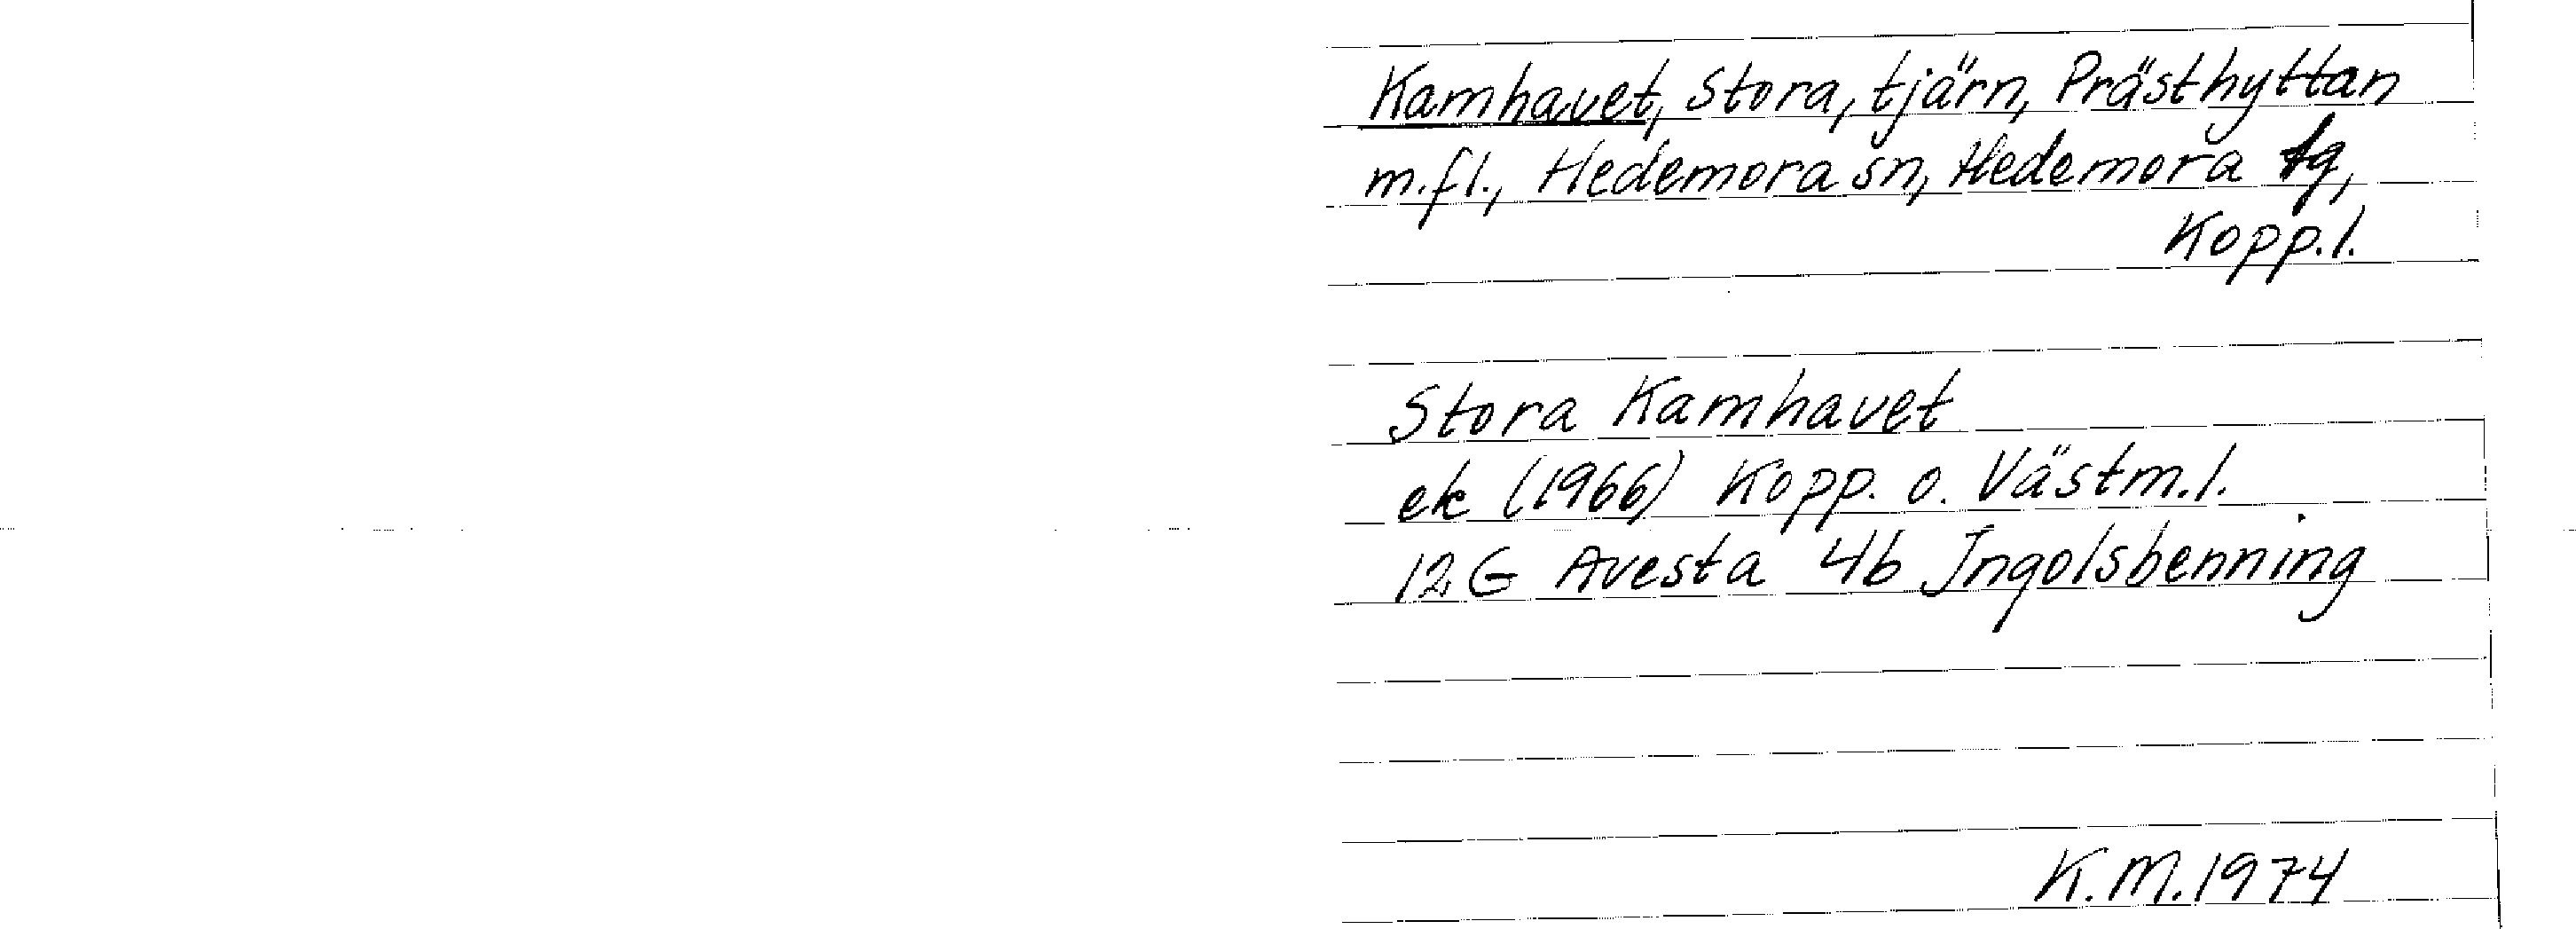 Kamhavet, Stora, tjärn, Prästhyttan
m.fl., Hedemora sn, Hedemora tg,
Kopp.l.
Stora Kamhavet
ek (1966) Kopp. o. Västm.l.
12 G Avesta 4b Ingolsbenning
K.M.1974